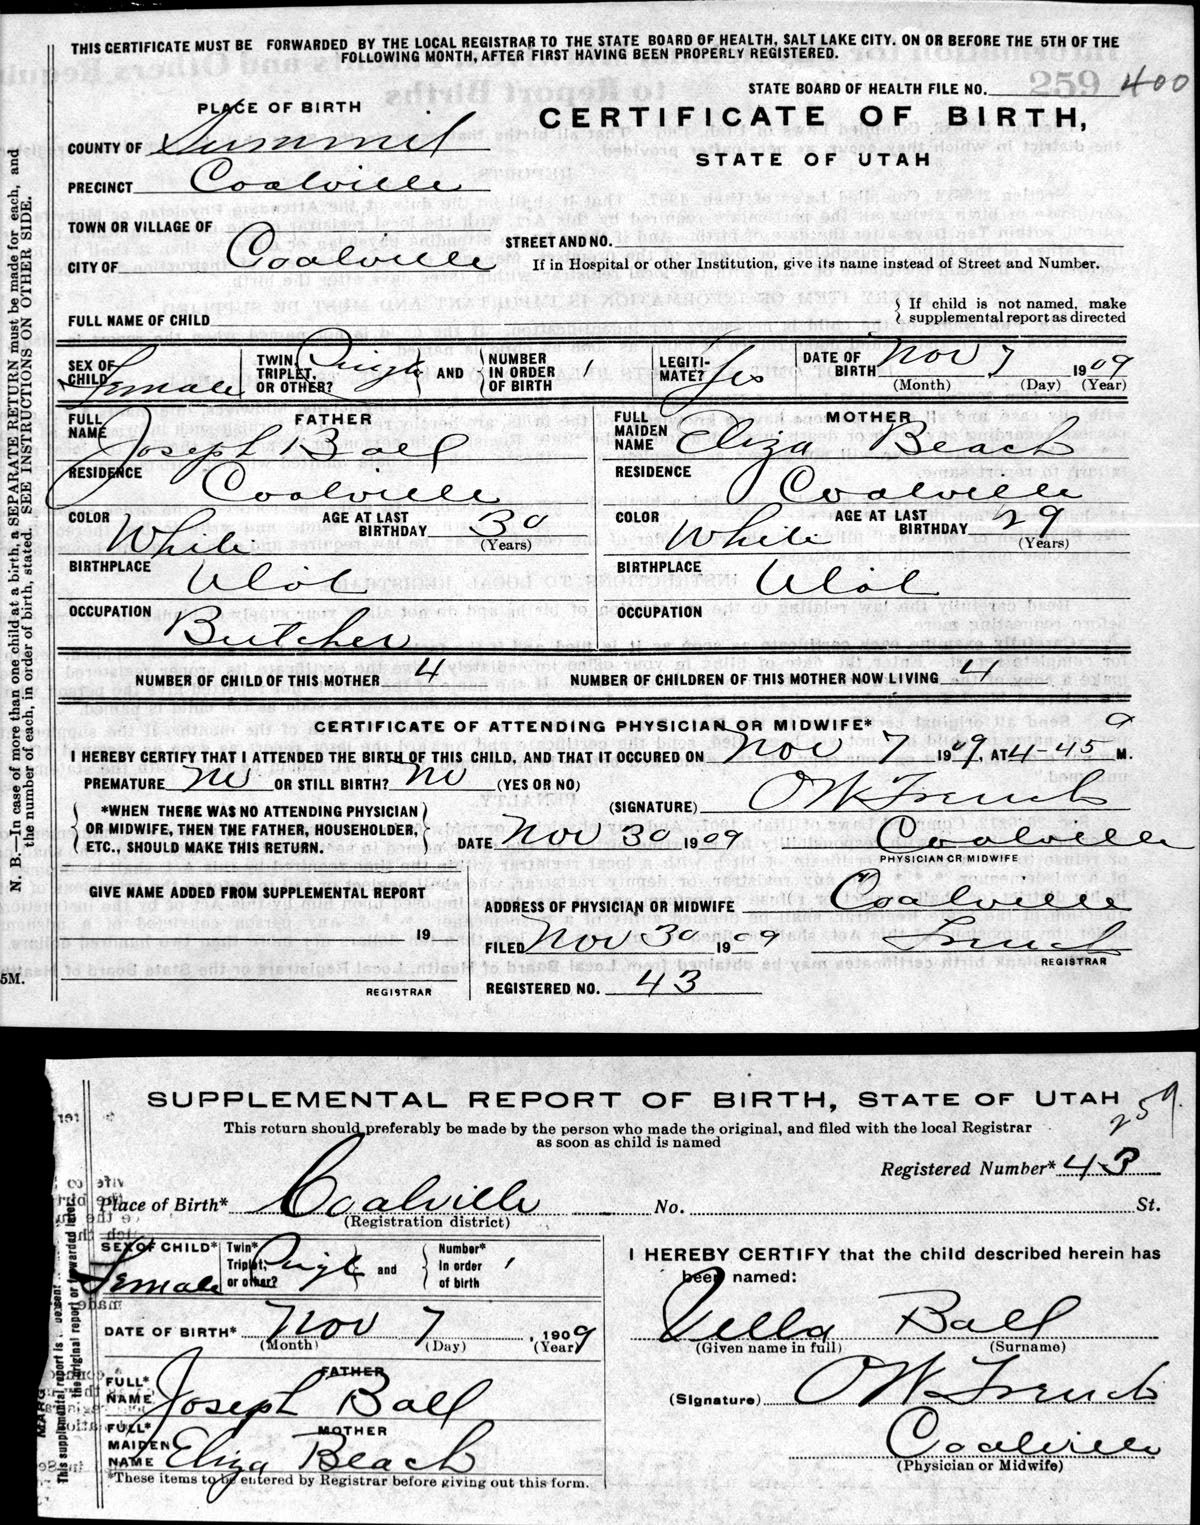 THIS CERTIFICATE MUST BE FORWARDED BY THE LOCAL REGISTRAR TO THE STATE BOARD OF HEALTH, SALT LAKE CITY, ON OR BEFORE THE 5TH OF THE
FOLLOWING MONTH, AFTER FIRST HAVING BEEN PROPERLY REGISTERED.
STATE BOARD OF HEALTH FILE NO. 259 400
PLACE OF BIRTH
CERTIFICATE OF BIRTH,
STATE OF UTAH
COUNTY OF Summit
PRECINCT Coalville
TOWN OR VILLAGE OF
STREET AND NO.
CITY OF Coalville
If in Hospital or other Institution, give its name instead of Street and Number.
FULL NAME OF CHILD
If child is not named, make
supplemental report as directed
SEX OF CHILD Female
TWIN, TRIPLET, OR OTHER? AND NUMBER IN ORDER OF BIRTH 1
LEGITIMATE? Yes
DATE OF BIRTH Nov 7 1909
(Month) (Day) (Year)
FATHER
FULL NAME Joseph Ball
RESIDENCE Coalville
COLOR White AGE AT LAST BIRTHDAY 30 (Years)
BIRTHPLACE Utah
OCCUPATION Butcher
MOTHER
FULL MAIDEN NAME Eliza Beach
RESIDENCE Coalville
COLOR White AGE AT LAST BIRTHDAY 29 (Years)
BIRTHPLACE Utah
OCCUPATION
NUMBER OF CHILD OF THIS MOTHER 4 NUMBER OF CHILDREN OF THIS MOTHER NOW LIVING 4
CERTIFICATE OF ATTENDING PHYSICIAN OR MIDWIFE*
I HEREBY CERTIFY THAT I ATTENDED THE BIRTH OF THIS CHILD, AND THAT IT OCCURED ON Nov 7 1909, AT 4-45 a M.
PREMATURE no OR STILL BIRTH? no (YES OR NO)
(SIGNATURE) O W French
*WHEN THERE WAS NO ATTENDING PHYSICIAN
OR MIDWIFE, THEN THE FATHER, HOUSEHOLDER,
ETC., SHOULD MAKE THIS RETURN.
DATE Nov 30 1909 Coalville
PHYSICIAN OR MIDWIFE
GIVE NAME ADDED FROM SUPPLEMENTAL REPORT
19
REGISTRAR
ADDRESS OF PHYSICIAN OR MIDWIFE Coalville
FILED Nov 30 1909 French
REGISTRAR
REGISTERED NO. 43
N. B.—In case of more than one child at a birth, a SEPARATE RETURN must be made for each, and
the number of each, in order of birth, stated. SEE INSTRUCTIONS ON OTHER SIDE.
5M.
SUPPLEMENTAL REPORT OF BIRTH, STATE OF UTAH
259.
This return should preferably be made by the person who made the original, and filed with the local Registrar
as soon as child is named
Registered Number* 43
Place of Birth* Coalville No. St.
(Registration district)
SEX OF CHILD* Female
Twin* Triplet, or other? and Number* in order of birth 1
DATE OF BIRTH* Nov 7, 1909
(Month) (Day) (Year)
FATHER
FULL* NAME Joseph Ball
MOTHER
FULL* MAIDEN NAME Eliza Beach
*These items to be entered by Registrar before giving out this form.
I HEREBY CERTIFY that the child described herein has
been named:
Vella Ball
(Given name in full) (Surname)
(Signature) O W French
Coalville
(Physician or Midwife)